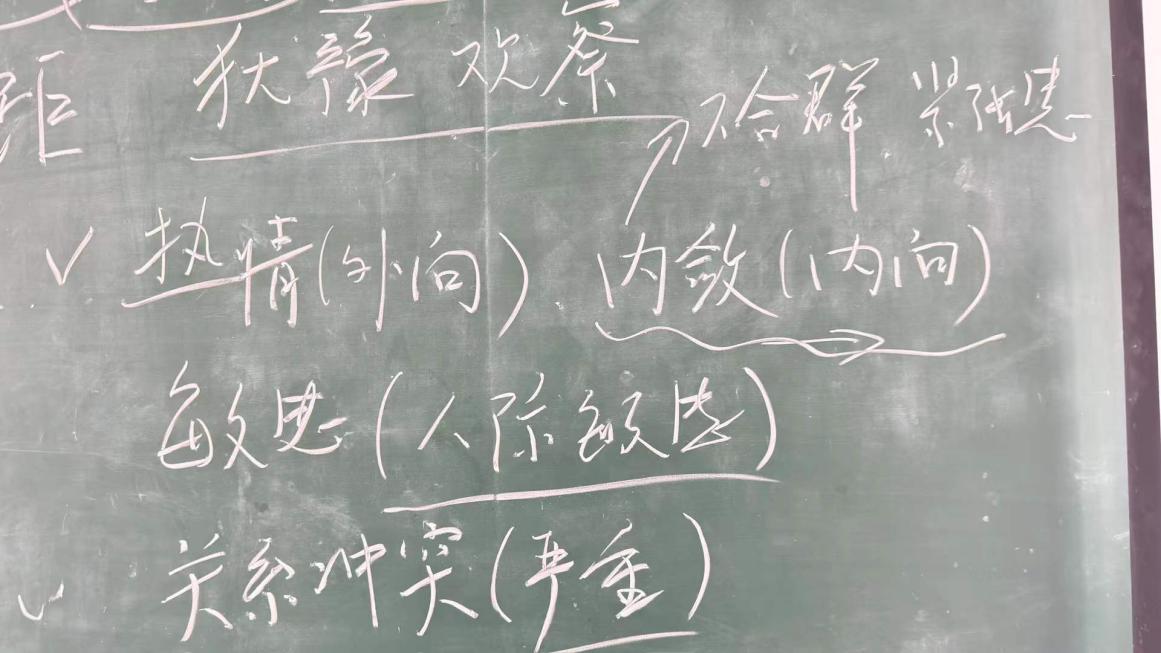 距 犹豫 观察
不合群 紧张感
热情(外向) 内敛(内向)
敏感(人际敏感)
关系冲突(严重)